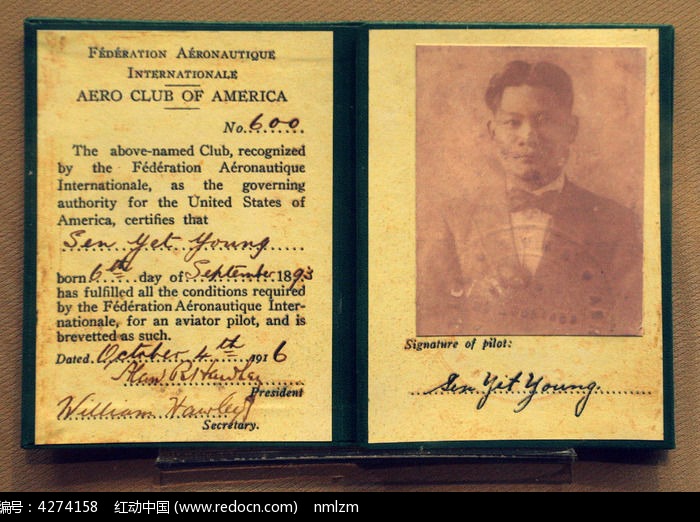 FÉDÉRATION AÉRONAUTIQUE
INTERNATIONALE
AERO CLUB OF AMERICA
No. 600
The above-named Club, recognized
by the Fédération Aéronautique
Internationale, as the governing
authority for the United States of
America, certifies that
Sen Yet Young
born 6th day of September 1893
has fulfilled all the conditions required
by the Fédération Aéronautique Inter-
nationale, for an aviator pilot, and is
brevetted as such.
Dated. October 4th 1916
R Hawley
President
William Hawley
Secretary.
Signature of pilot:
Sen Yet Young.
编号：4274158 红动中国 (www.redocn.com) nmlzm